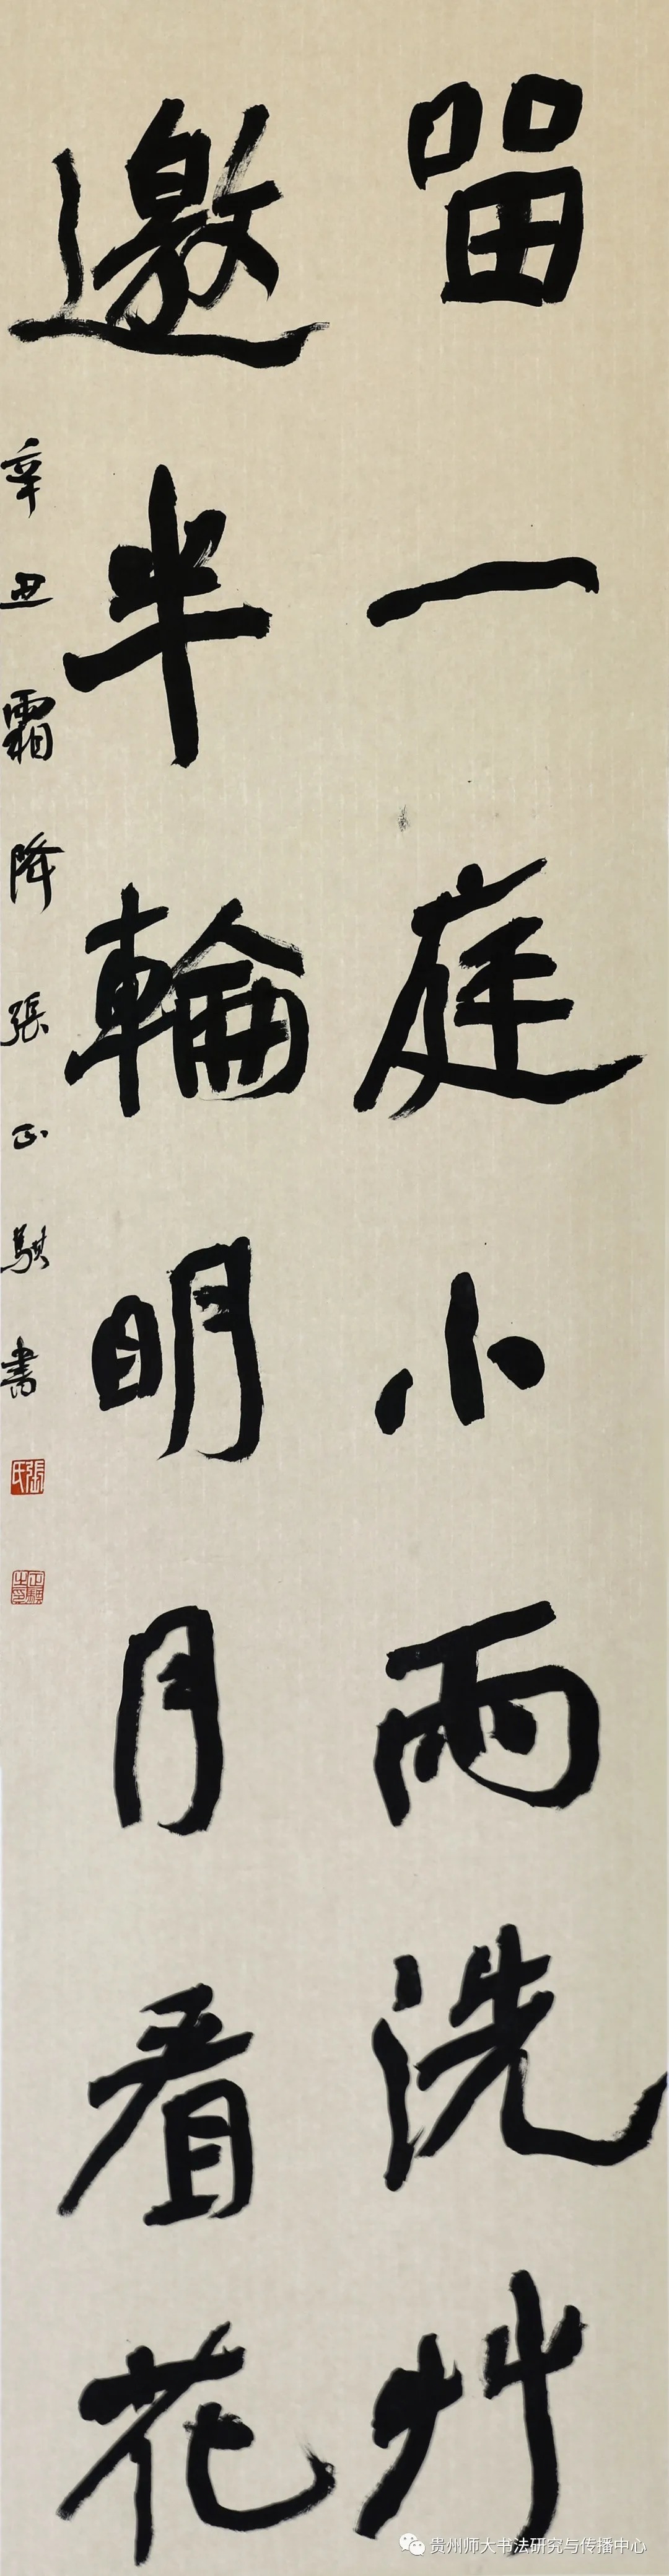 畱一庭小雨洗艸
邀半輪明月看花
辛丑霜降張正騏書
張氏
貴州师大书法研究与传播中心